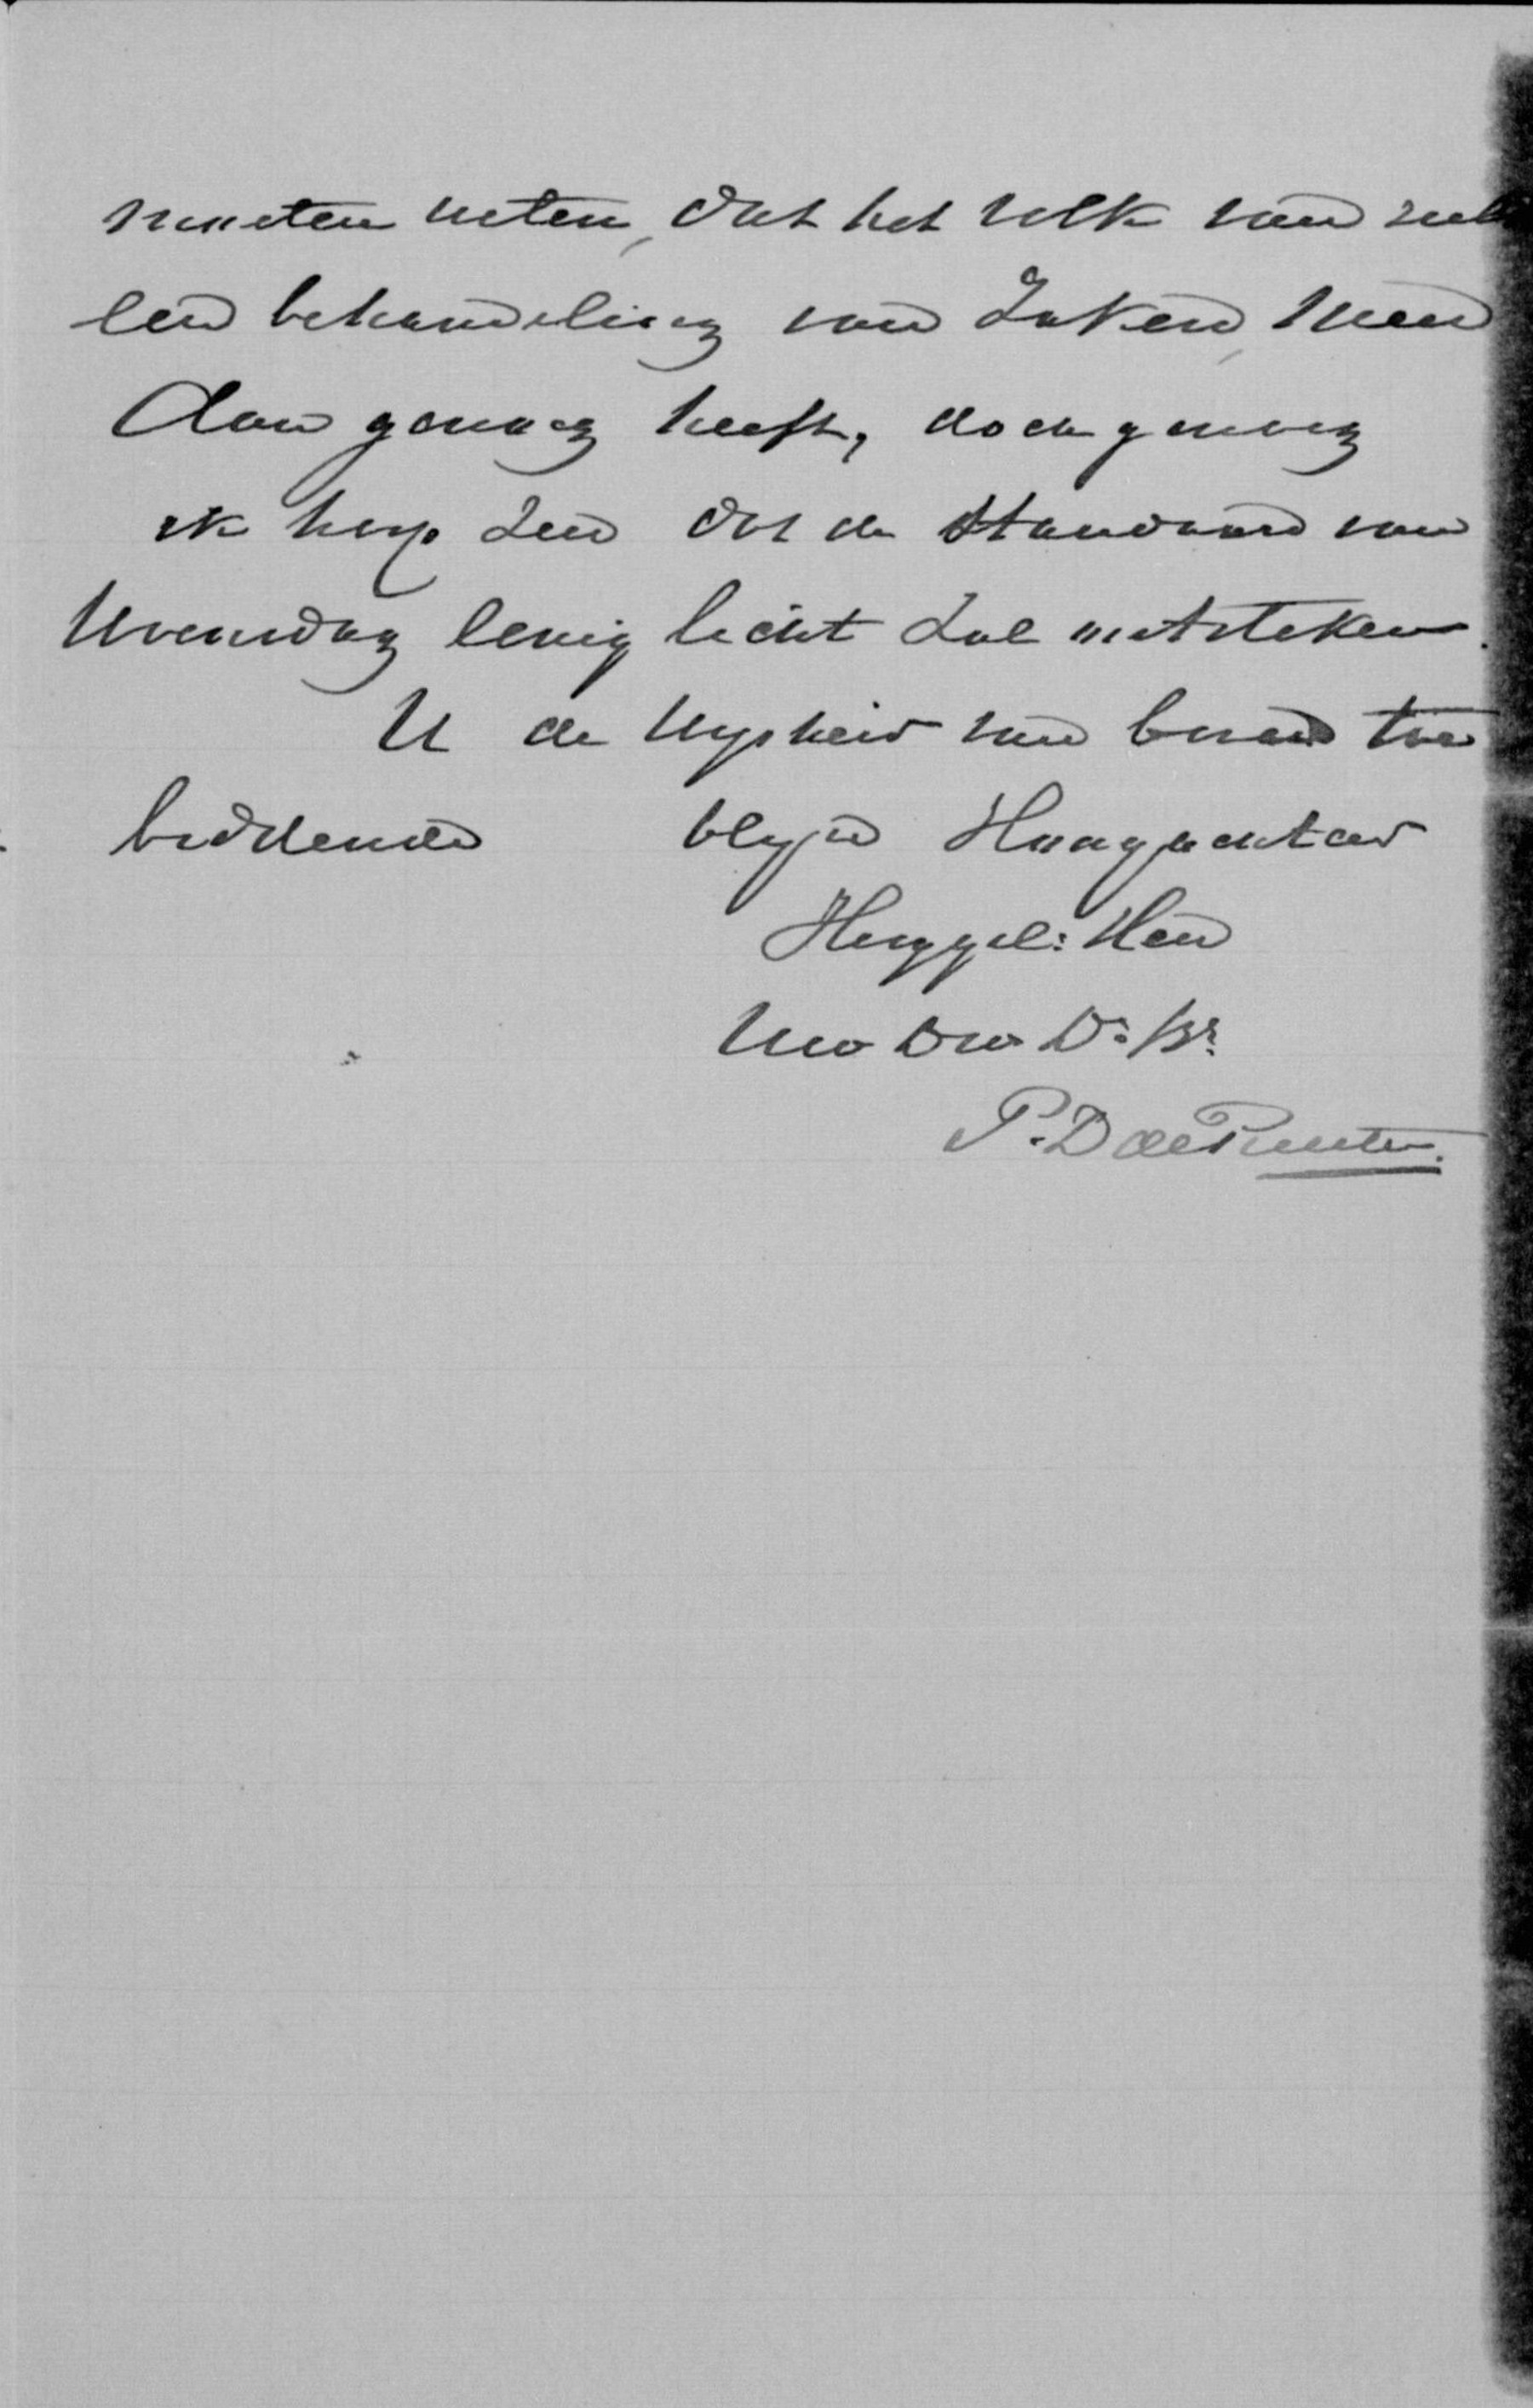 moeten weten, dat het volk van zul
len behandeling van Zaken, meer
dan genoeg heeft, doch genoeg
ik hoop zeer dat de Standaard van
Woensdag eenig licht zal ontsteken.
U de wysheid van boven toe
biddende blyve Hoogachtend
Hoggel: Heer
Uw Dw D: Br:
P. D de Ruiter.